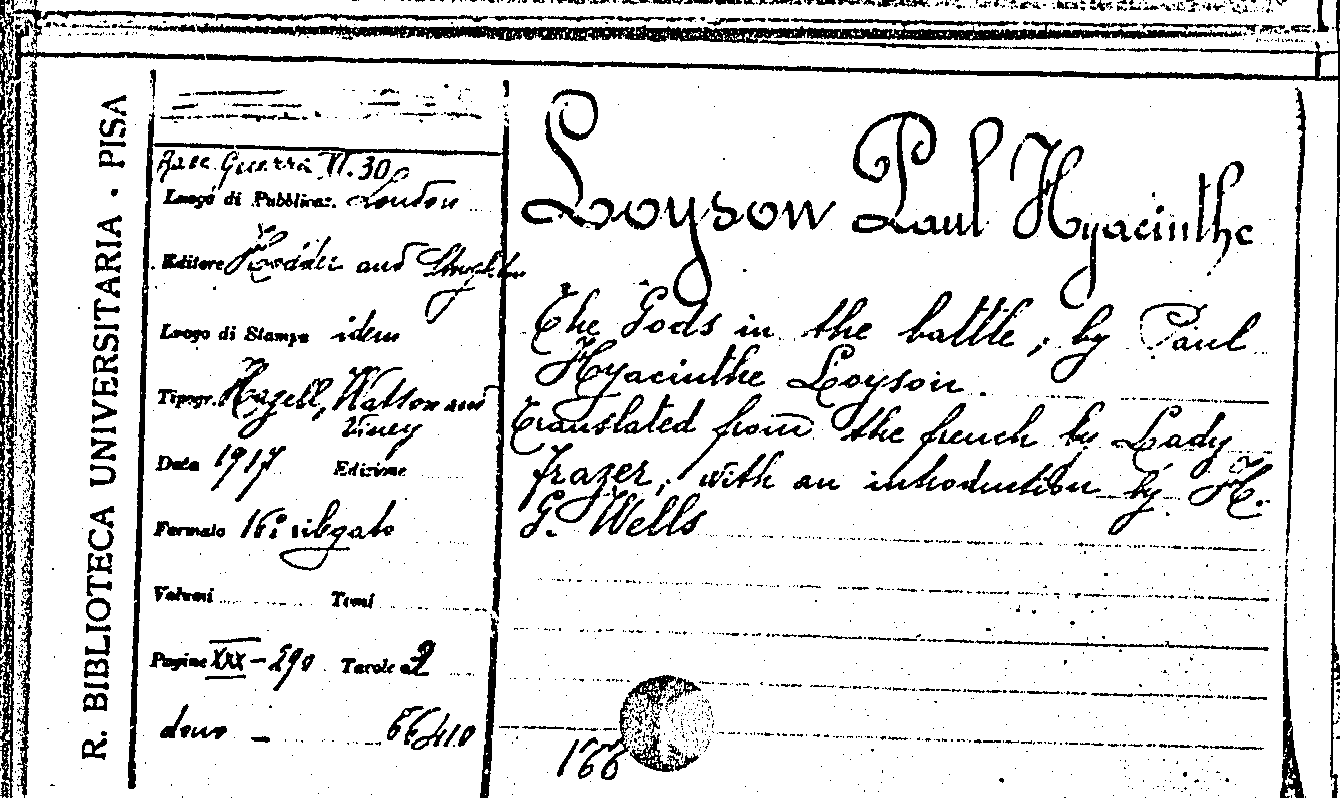 R. BIBLIOTECA UNIVERSITARIA · PISA
Racc. Guerra VI. 30
Luogo di Pubblicaz. London
Editore Hodder and Stoughton
Luogo di Stampa idem
Tipogr. Hazell, Watson and
Viney
Data 1917 Edizione
Formato 16° rilegato
Volumi Tomi
Pagine XXX - 290 Tavole 2
dono -
Loyson Paul Hyacinthe
The Gods in the battle, by Paul
Hyacinthe Loyson.
Translated from the french by Lady
Frazer, with an introduction by H.
G. Wells
166